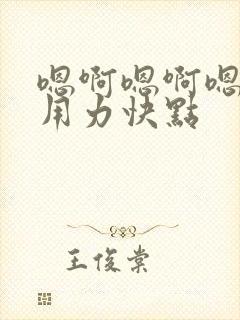 嗯啊嗯啊嗯
用力快點
王俊棠